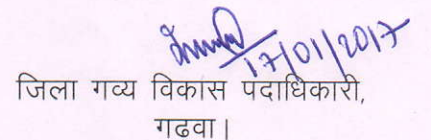 17/01/2017
जिला गव्य विकास पदाधिकारी,
गढवा।